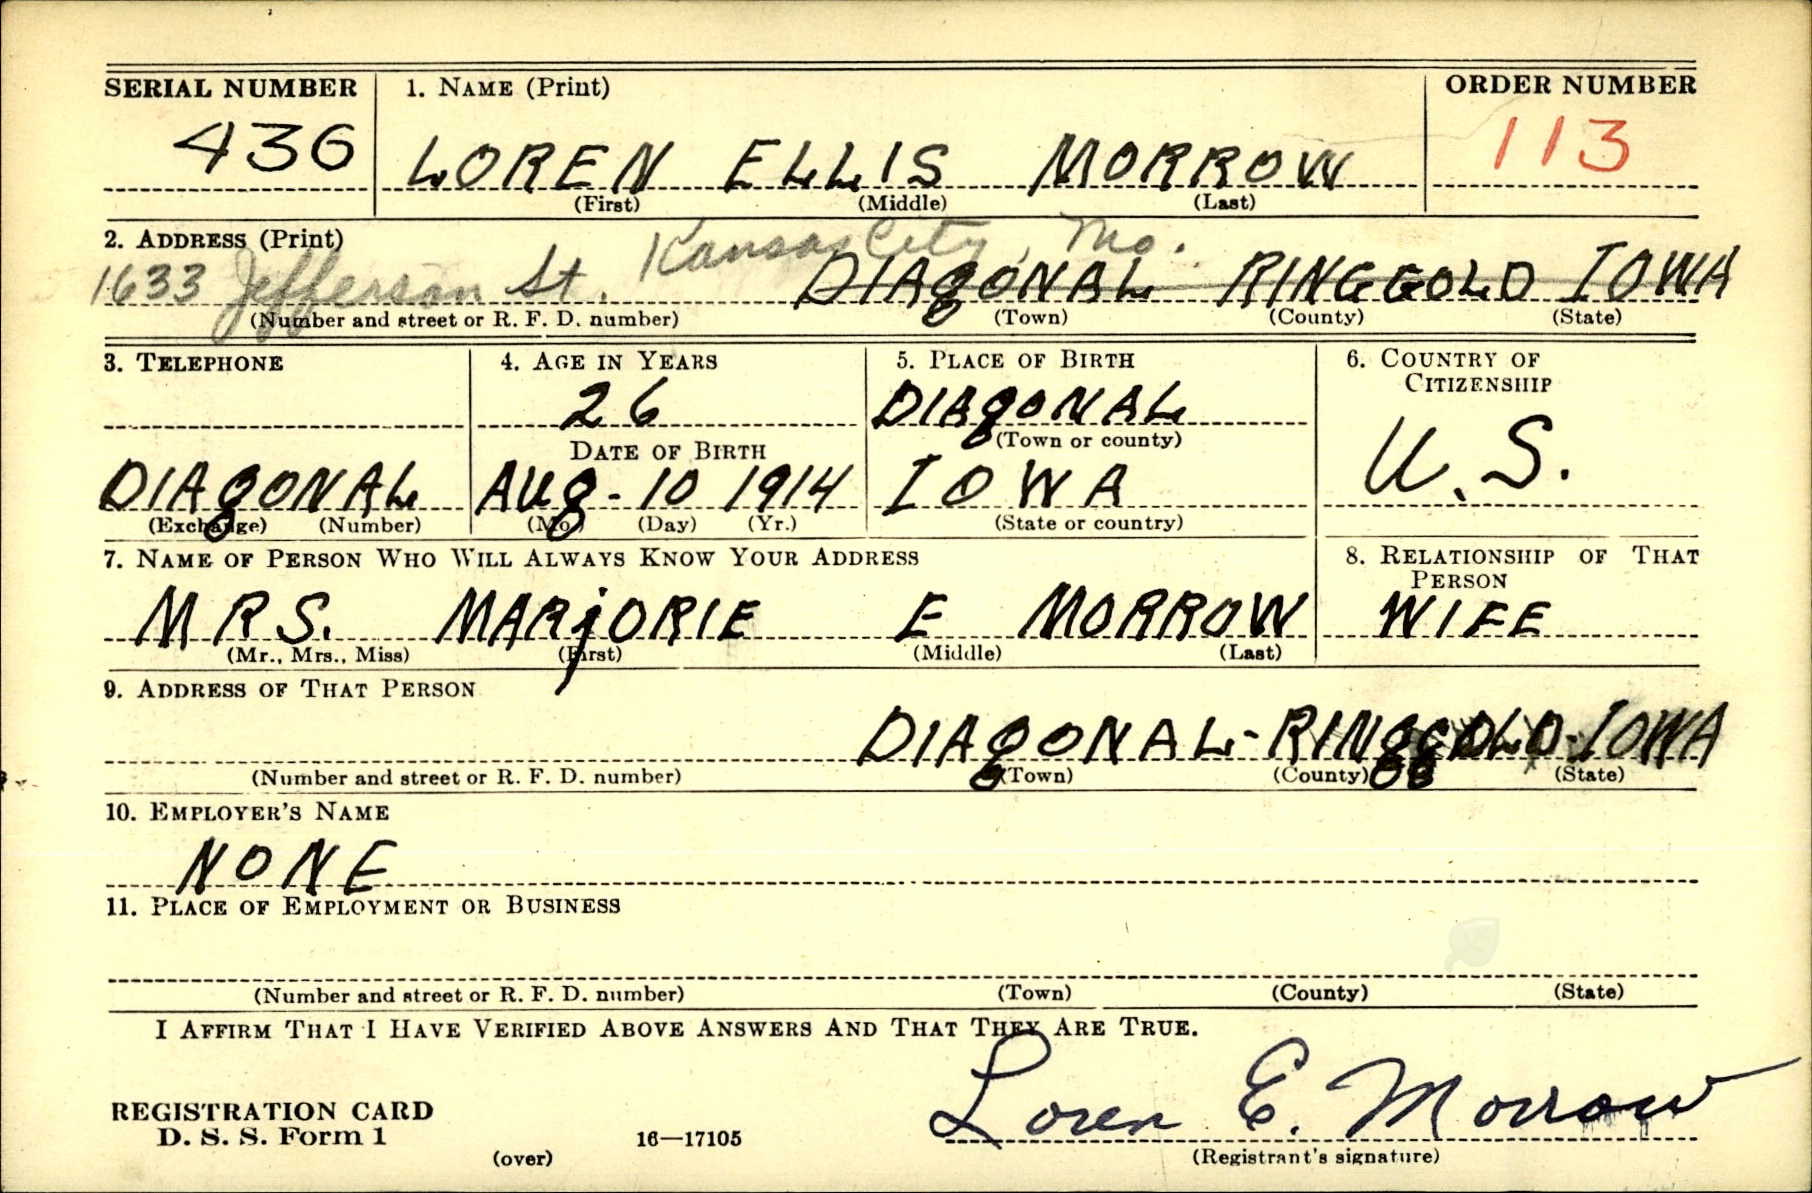 SERIAL NUMBER 1. NAME (Print) ORDER NUMBER
436 LOREN ELLIS MORROW 113
(First) (Middle) (Last)
2. ADDRESS (Print) Kansas City, Mo.
1633 Jefferson St. DIAgONAL RINGGOLD IOWA
(Number and street or R. F. D. number) (Town) (County) (State)
3. TELEPHONE 4. AGE IN YEARS 5. PLACE OF BIRTH 6. COUNTRY OF
CITIZENSHIP
26 DIAgONAL
(Town or county)
DATE OF BIRTH
DIAgONAL AUg- 10 1914 IOWA U.S.
(Exchange) (Number) (Mo.) (Day) (Yr.) (State or country)
7. NAME OF PERSON WHO WILL ALWAYS KNOW YOUR ADDRESS 8. RELATIONSHIP OF THAT
PERSON
MRS. MARjORIE E MORROW WIFE
(Mr., Mrs., Miss) (First) (Middle) (Last)
9. ADDRESS OF THAT PERSON
DIAgONAL-RINggOLD-IOWA
(Number and street or R. F. D. number) (Town) (County) (State)
10. EMPLOYER'S NAME
NONE
11. PLACE OF EMPLOYMENT OR BUSINESS
(Number and street or R. F. D. number) (Town) (County) (State)
I AFFIRM THAT I HAVE VERIFIED ABOVE ANSWERS AND THAT THEY ARE TRUE.
REGISTRATION CARD
D. S. S. Form 1 16—17105 Loren E. Morrow
(over) (Registrant's signature)